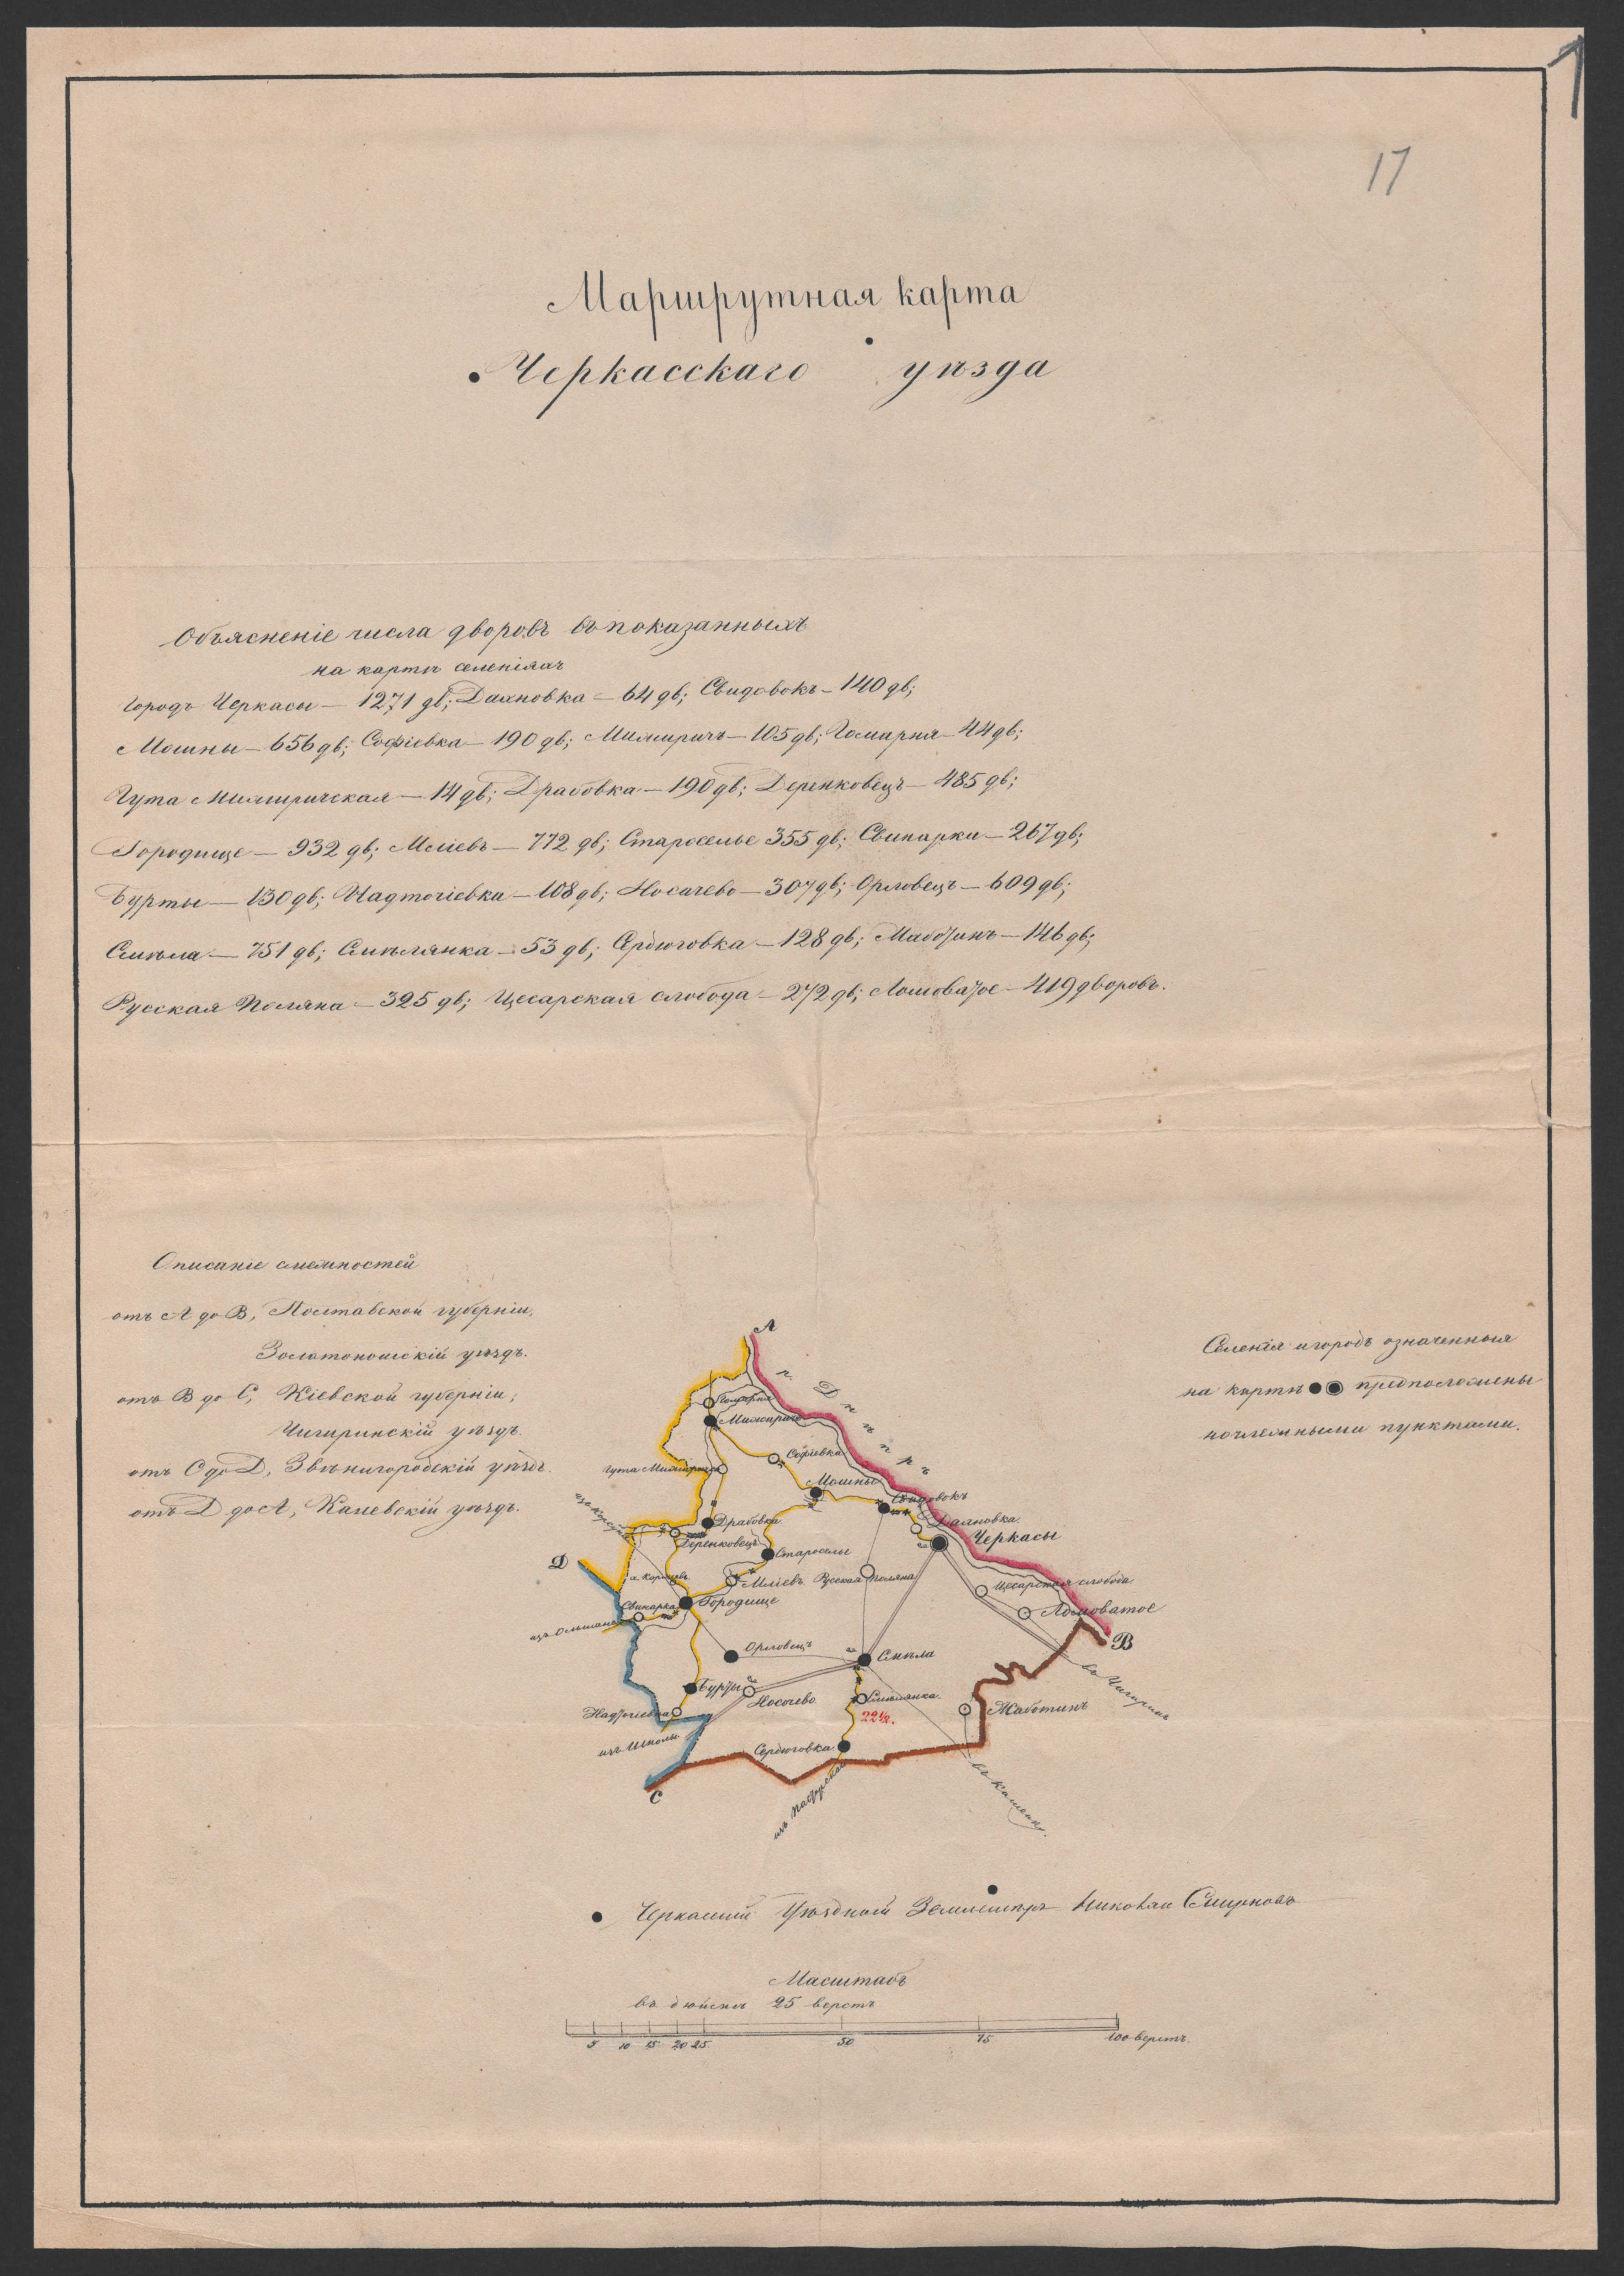 17
Маршрутная карта
Черкасскаго уѣзда
Объясненіе числа дворовъ въ показанныхъ
на картѣ селеніяхъ
Городъ Черкасы — 1271 дв; Дахновка — 64 дв; Свидовокъ — 140 дв;
Мошны — 656 дв; Софіевка — 190 дв; Межиричъ — 105 дв; Гамарня — 44 дв;
Гута Межиричская — 14 дв; Драбовка — 190 дв; Деренковецъ — 485 дв;
Городище — 932 дв; Мліевъ — 772 дв; Староселье 355 дв; Свинарки — 267 дв;
Бурты — 130 дв; Надточіевка — 108 дв; Носачево — 307 дв; Орловецъ — 609 дв;
Смѣла — 751 дв; Смѣлянка — 53 дв; Сердюговка — 128 дв; Жаботинъ — 146 дв;
Русская Поляна — 325 дв; Цесарская слобода — 272 дв; Ломоватое — 419 дворовъ.
Описаніе смежностей
отъ А до В, Полтавской губерніи,
Золотоношскій уѣздъ.
отъ В до С, Кіевской губерніи,
Чигиринскій уѣздъ.
отъ С до Д, Звѣнигородскій уѣздъ.
отъ Д до А, Каневскій уѣздъ.
Селенія и городъ означенныя
на картѣ предположены
ночлежными пунктами.
А
р. Днѣпръ
Гамарня
Межиричъ
Софіевка
Гута Межиричск
Мошны
Свидовокъ
Дахновка
Драбовка
Черкасы
Деренковецъ
Староселье
Д
Мліевъ
Русская Поляна
Цесарская слобода
Свинарка
Городище
Ломоватое
изъ Ольшаны
В
Орловецъ
Смѣла
въ Чигиринъ
Бурты
Носачево
Смѣлянка
Жаботинъ
Надточіевка
22½.
изъ Шполы
Сердюговка
С
въ Каменку.
Черкасскій Уѣздный Землемѣръ Николай Смирновъ
Масштабъ
въ дюймѣ 25 верстъ
5 10 15 20 25 50 75 100 верстъ.